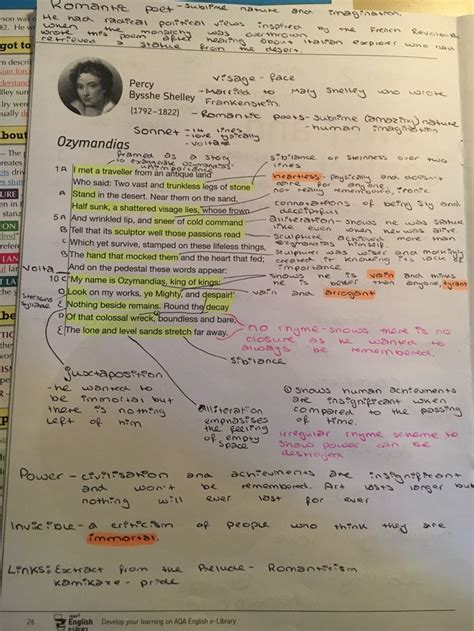 Romantic poet - sublime nature and imagination.
He had radical political views inspired by the French Revolution
when the monarchy was overthrown
wrote this poem after hearing about Italian explorer who had
retrieved a statue from the desert.
Percy
Bysshe Shelley
(1792–1822)
visage - face
- Married to Mary Shelley who wrote
Frankenstein
- Romantic poets - sublime (amazing) nature
- human imagination
Sonnet - 14 lines
- love typically
- voltare
Ozymandias
framed as a story
to
Ozymandias'
sibilance
over two
lines
1 A I met a traveller from an antique land
B Who said: Two vast and trunkless legs of stone
A Stand in the desert. Near them on the sand,
Half sunk, a shattered visage lies, whose frown
5 A And wrinkled lip, and sneer of cold command
B Tell that its sculptor well those passions read
C Which yet survive, stamped on these lifeless things,
D The hand that mocked them and the heart that fed;
C And on the pedestal these words appear:
10 C 'My name is Ozymandias, king of kings:
D Look on my works, ye Mighty, and despair!'
E Nothing beside remains. Round the decay
D Of that colossal wreck, boundless and bare,
E The lone and level sands stretch far away.
volta
heartless - physically and doesn't
care for anyone
not really remembered, ironic
connotations of being sly and
deceitful
alliteration - shows he was statue
like even when he was alive.
sculpture achieved more than
Ozymandias himself
sculpture was wiser and mockingly
created it knowing his lack of
importance
shows he is vain and thinks
he is better than anyone, tyrant
vain and arrogant
no rhyme - shows there is no
closure as he wanted to
always be remembered.
sibilance
juxtaposition
- he wanted to
be immortal but
there is nothing
left of him
alliteration
emphasises
the feeling
of empty
space
① shows human achievements
are insignificant when
compared to the passing
of time.
irregular rhyme scheme to
show power can be
destroyed
Power - civilisation and achievments are insignificant
and won't be remembered. Art lasts longer but
nothing will ever last for ever
Invicible - a criticism of people who think they are
immortal.
Links: Extract from the Prelude - Romanticism
Kamikaze - pride
26
AQA
English
e-Library
Develop your learning on AQA English e-Library